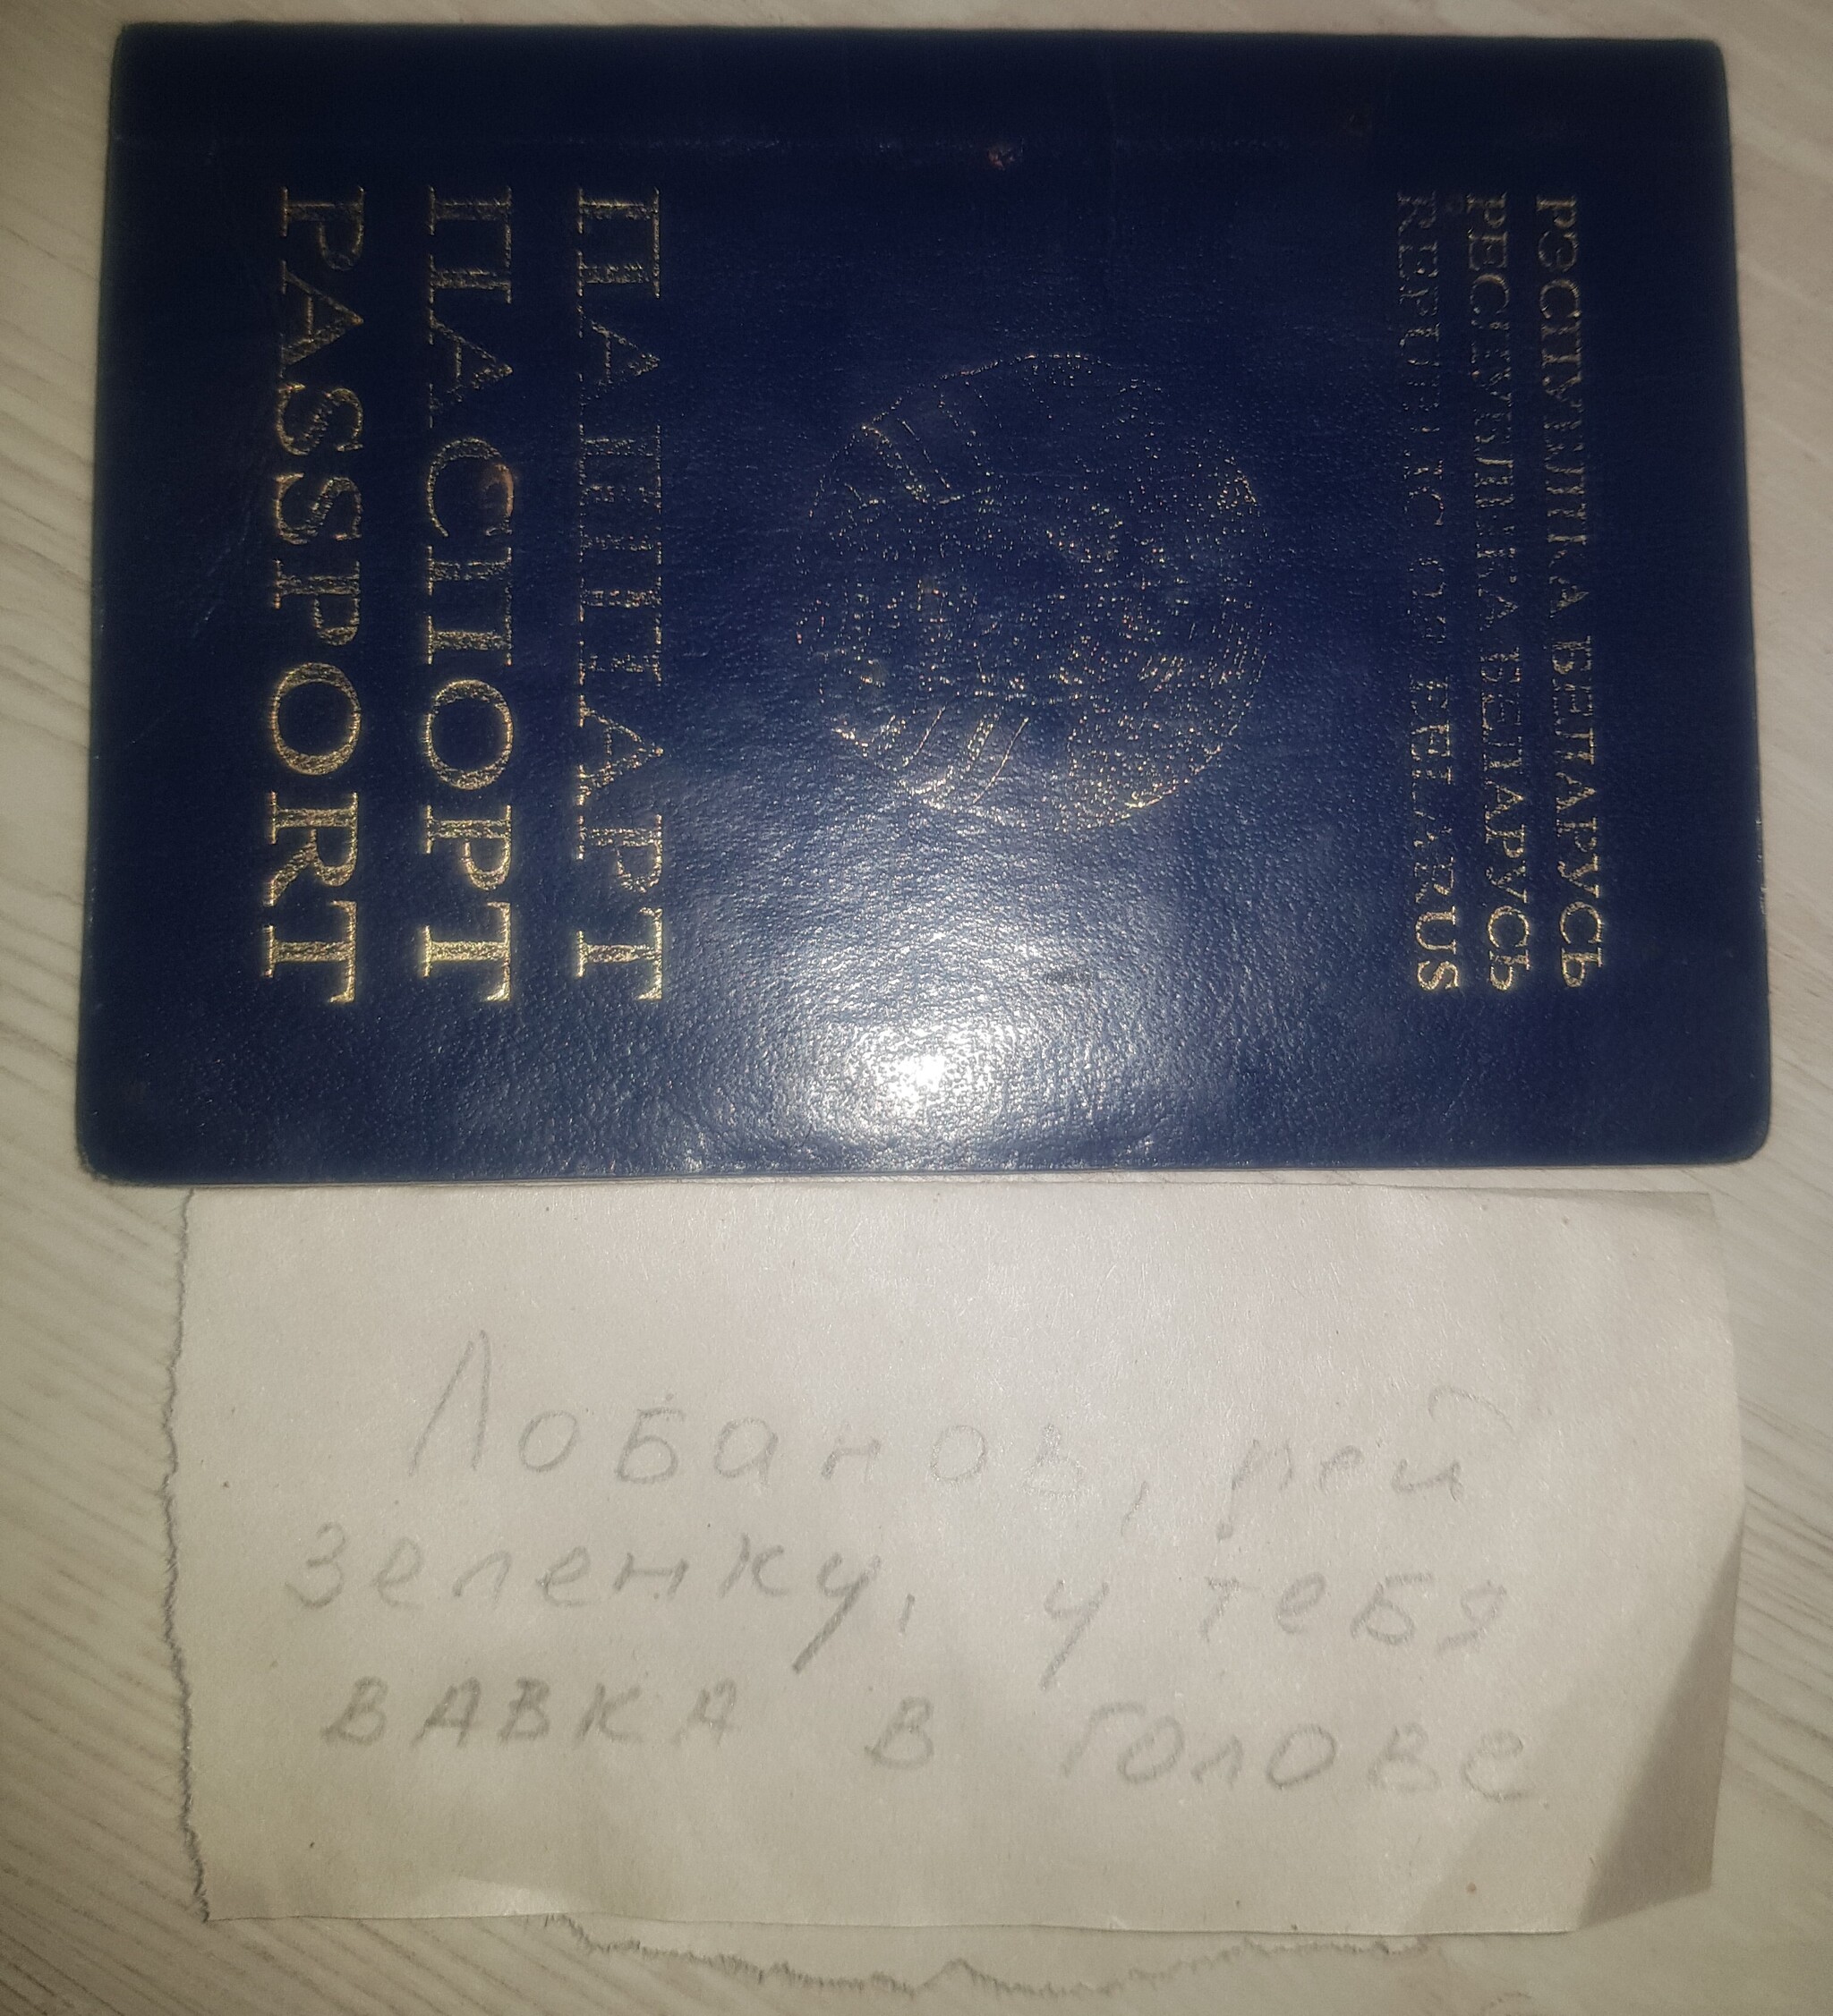 РЭСПУБЛІКА БЕЛАРУСЬ
РЕСПУБЛИКА БЕЛАРУСЬ
REPUBLIC OF BELARUS
ПАШПАРТ
ПАСПОРТ
PASSPORT
Лобанов, пей
зеленку, у тебя
ВАВКА в голове